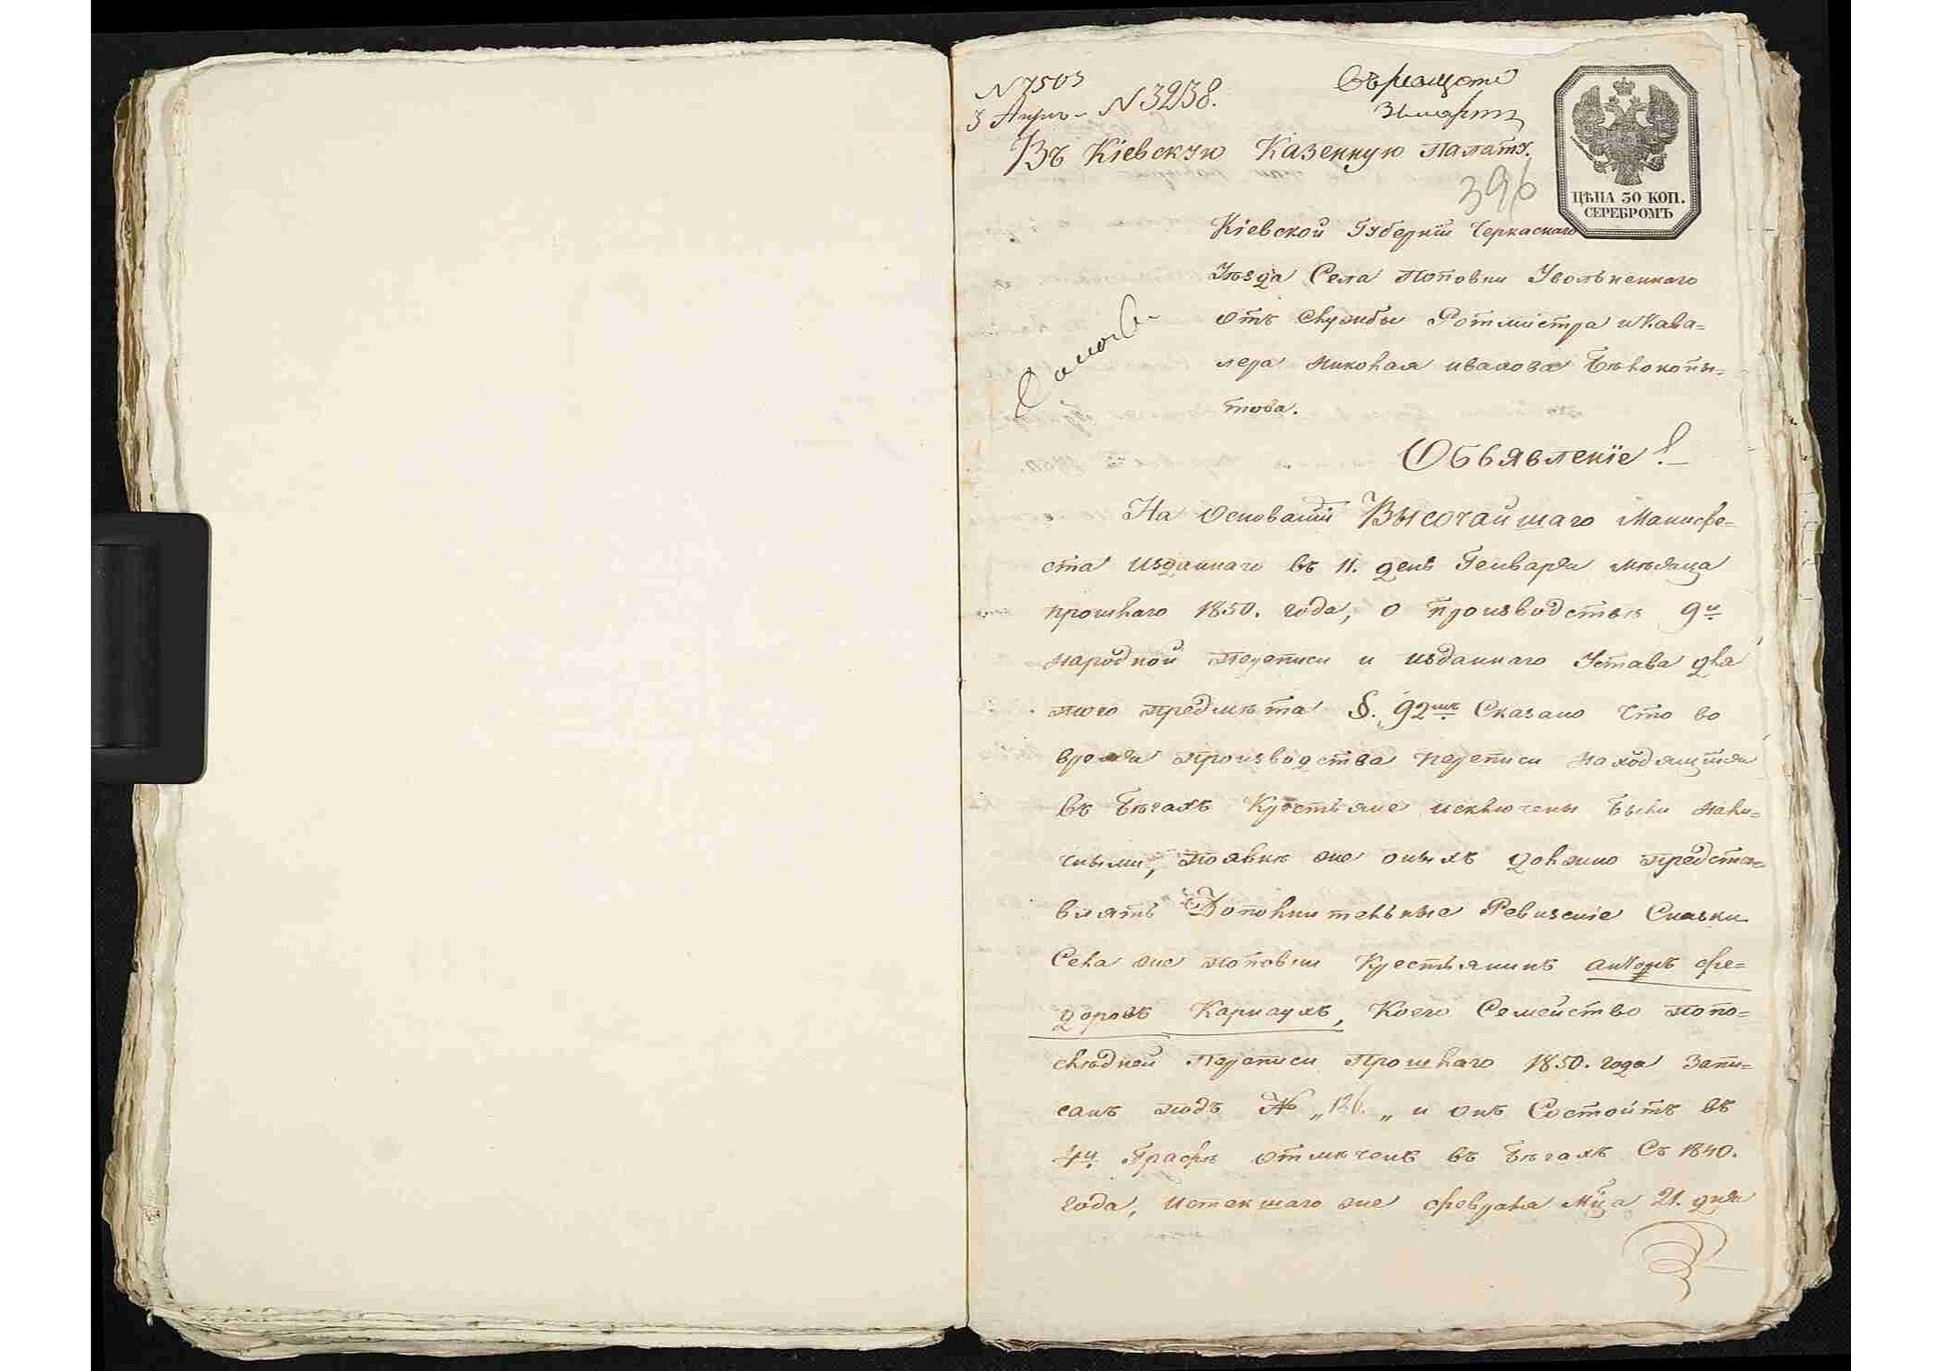 N 7503
3 Апрл- N 3238.
31 марта
Въ Кіевскую Казенную палату.
396
ЦѢНА 30 КОП.
СЕРЕБРОМЪ
Кіевской Губерніи Черкаскаго
Уѣзда Села Поповки Увольненнаго
отъ службы Ротмистра и Кава=
лера Николая иванова Бѣлокопы=
това.
Объявленіе!
На основаніи Высочайшаго Манифе=
ста изданнаго въ 11. день Генваря мѣсяца
прошлаго 1850. года, о производствѣ 9й
народной переписи и изданнаго Устава для
того предмѣта §. 92мъ Сказано что во
время производства переписи находящіяся
въ бѣгахъ Крестьяне исключены были нали=
чными, появкѣ же оныхъ должно предста=
влять Дополнительные Ревизскіе Сказки
Села же поповки Крестьянинъ антонъ фе=
доровъ Карнаухъ, Коего Семейство попо=
слѣдней переписи прошлаго 1850. года Запи=
санъ подъ № „126.„ и онъ Состоитъ въ
4й графѣ отмѣченъ въ бѣгахъ Съ 1840.
года, истекшаго же февраля мца 21. дня